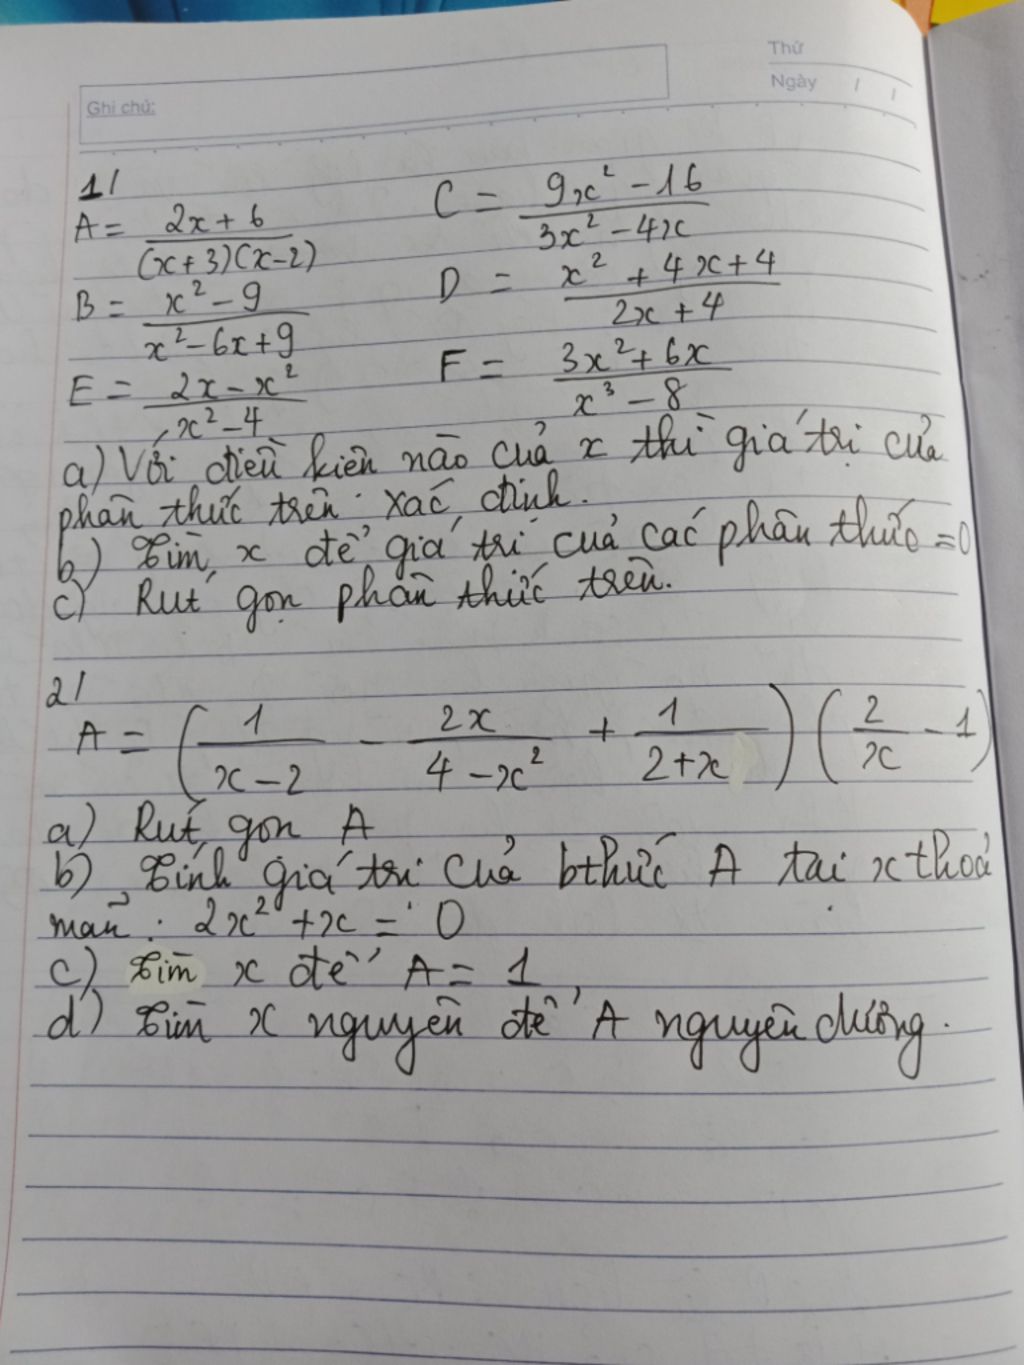 Thứ
Ngày / /
Ghi chú:
1/
A = (2x + 6)/((x+3)(x-2))
C = (9x² - 16)/(3x² - 4x)
B = (x² - 9)/(x² - 6x + 9)
D = (x² + 4x + 4)/(2x + 4)
E = (2x - x²)/(x² - 4)
F = (3x² + 6x)/(x³ - 8)
a) Với điều kiện nào của x thì giá trị của
phân thức trên xác định.
b) Tìm x để giá trị của các phân thức = 0
c) Rút gọn phân thức trên.
2/
A = (1/(x-2) - 2x/(4-x²) + 1/(2+x)) (2/x - 1)
a) Rút gọn A
b) Tính giá trị của bthức A tại x thoả
mãn : 2x² + x = 0
c) Tìm x để A = 1
d) Tìm x nguyên để A nguyên dương.